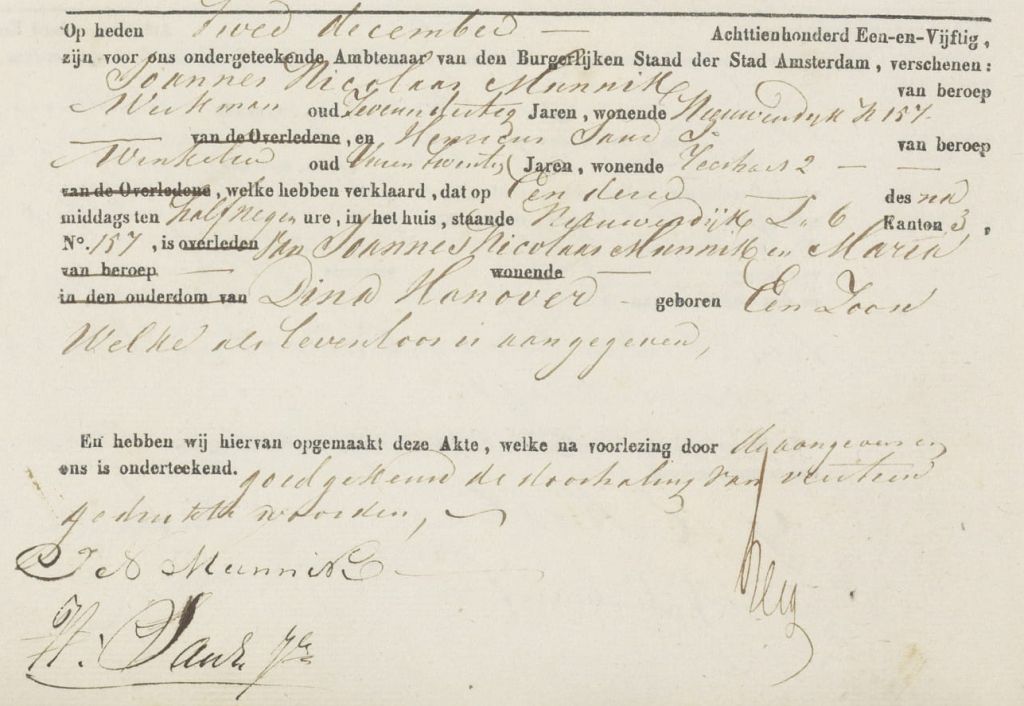 Op heden Twee december — Achttienhonderd Een-en-Vijftig,
zijn voor ons ondergeteekende Ambtenaar van den Burgerlijken Stand der Stad Amsterdam, verschenen:
Joannes Nicolaas Munnik van beroep
Werkman oud Jaren, wonende Nieuwendijk N 157
van de Overledene, en Henricus van beroep
Winkelier oud Jaren, wonende 2 — —
van de Overledene, welke hebben verklaard, dat op Een dezer — des na
middags ten half negen ure, in het huis, staande Nieuwendijk L. 6 Kanton 3,
N°. 157, is overleden Van Joannes Nicolaas Munnik en Maria
van beroep — wonende —
in den ouderdom van Dina Hanover — geboren Een Zoon
Welke als levenloos is aangegeven,
En hebben wij hiervan opgemaakt deze Akte, welke na voorlezing door de aangevers en
ons is onderteekend. goedgekeurd de doorhaling van veertien
gedrukte woorden,
J N Munnik
H.